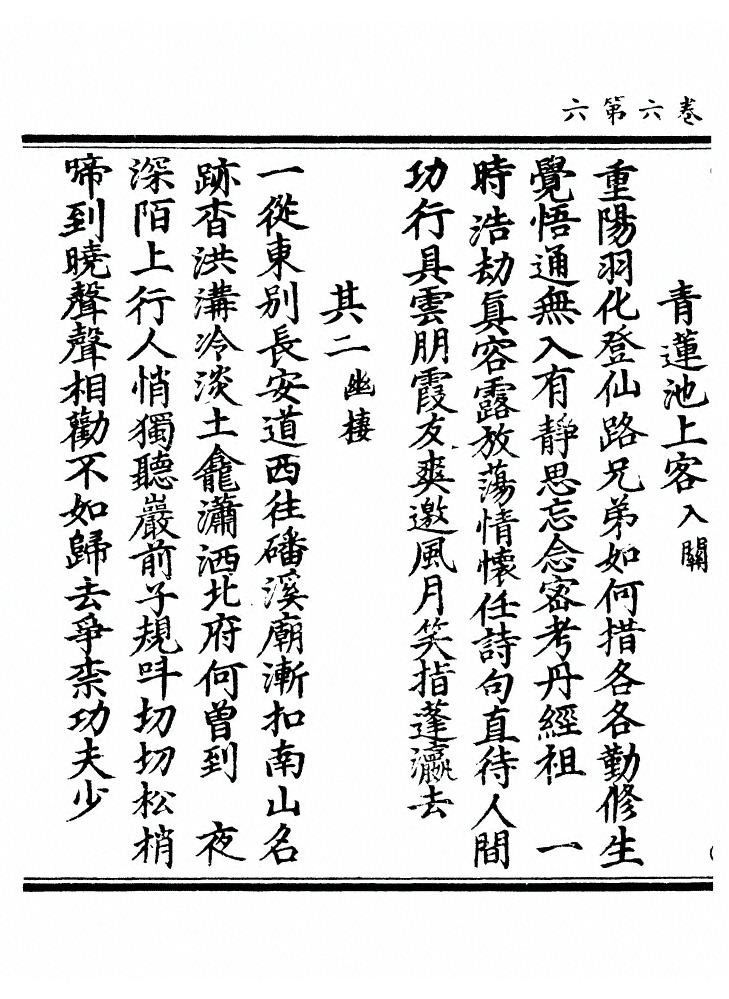 卷六第六
青蓮池上客入關
重陽羽化登仙路兄弟如何措各各勤修生
覺悟通無入有靜思忘念密考丹經祖　一
時浩劫真容露放蕩情懷任詩句直待人間
功行具雲朋霞友爽邀風月笑指蓬瀛去
其二幽棲
一從東別長安道西往磻溪廟漸扣南山名
跡杳洪溝冷淡土龕瀟洒北府何曾到　夜
深陌上行人悄獨聽巖前子規呌切切松梢
啼到曉聲聲相勸不如歸去爭柰功夫少